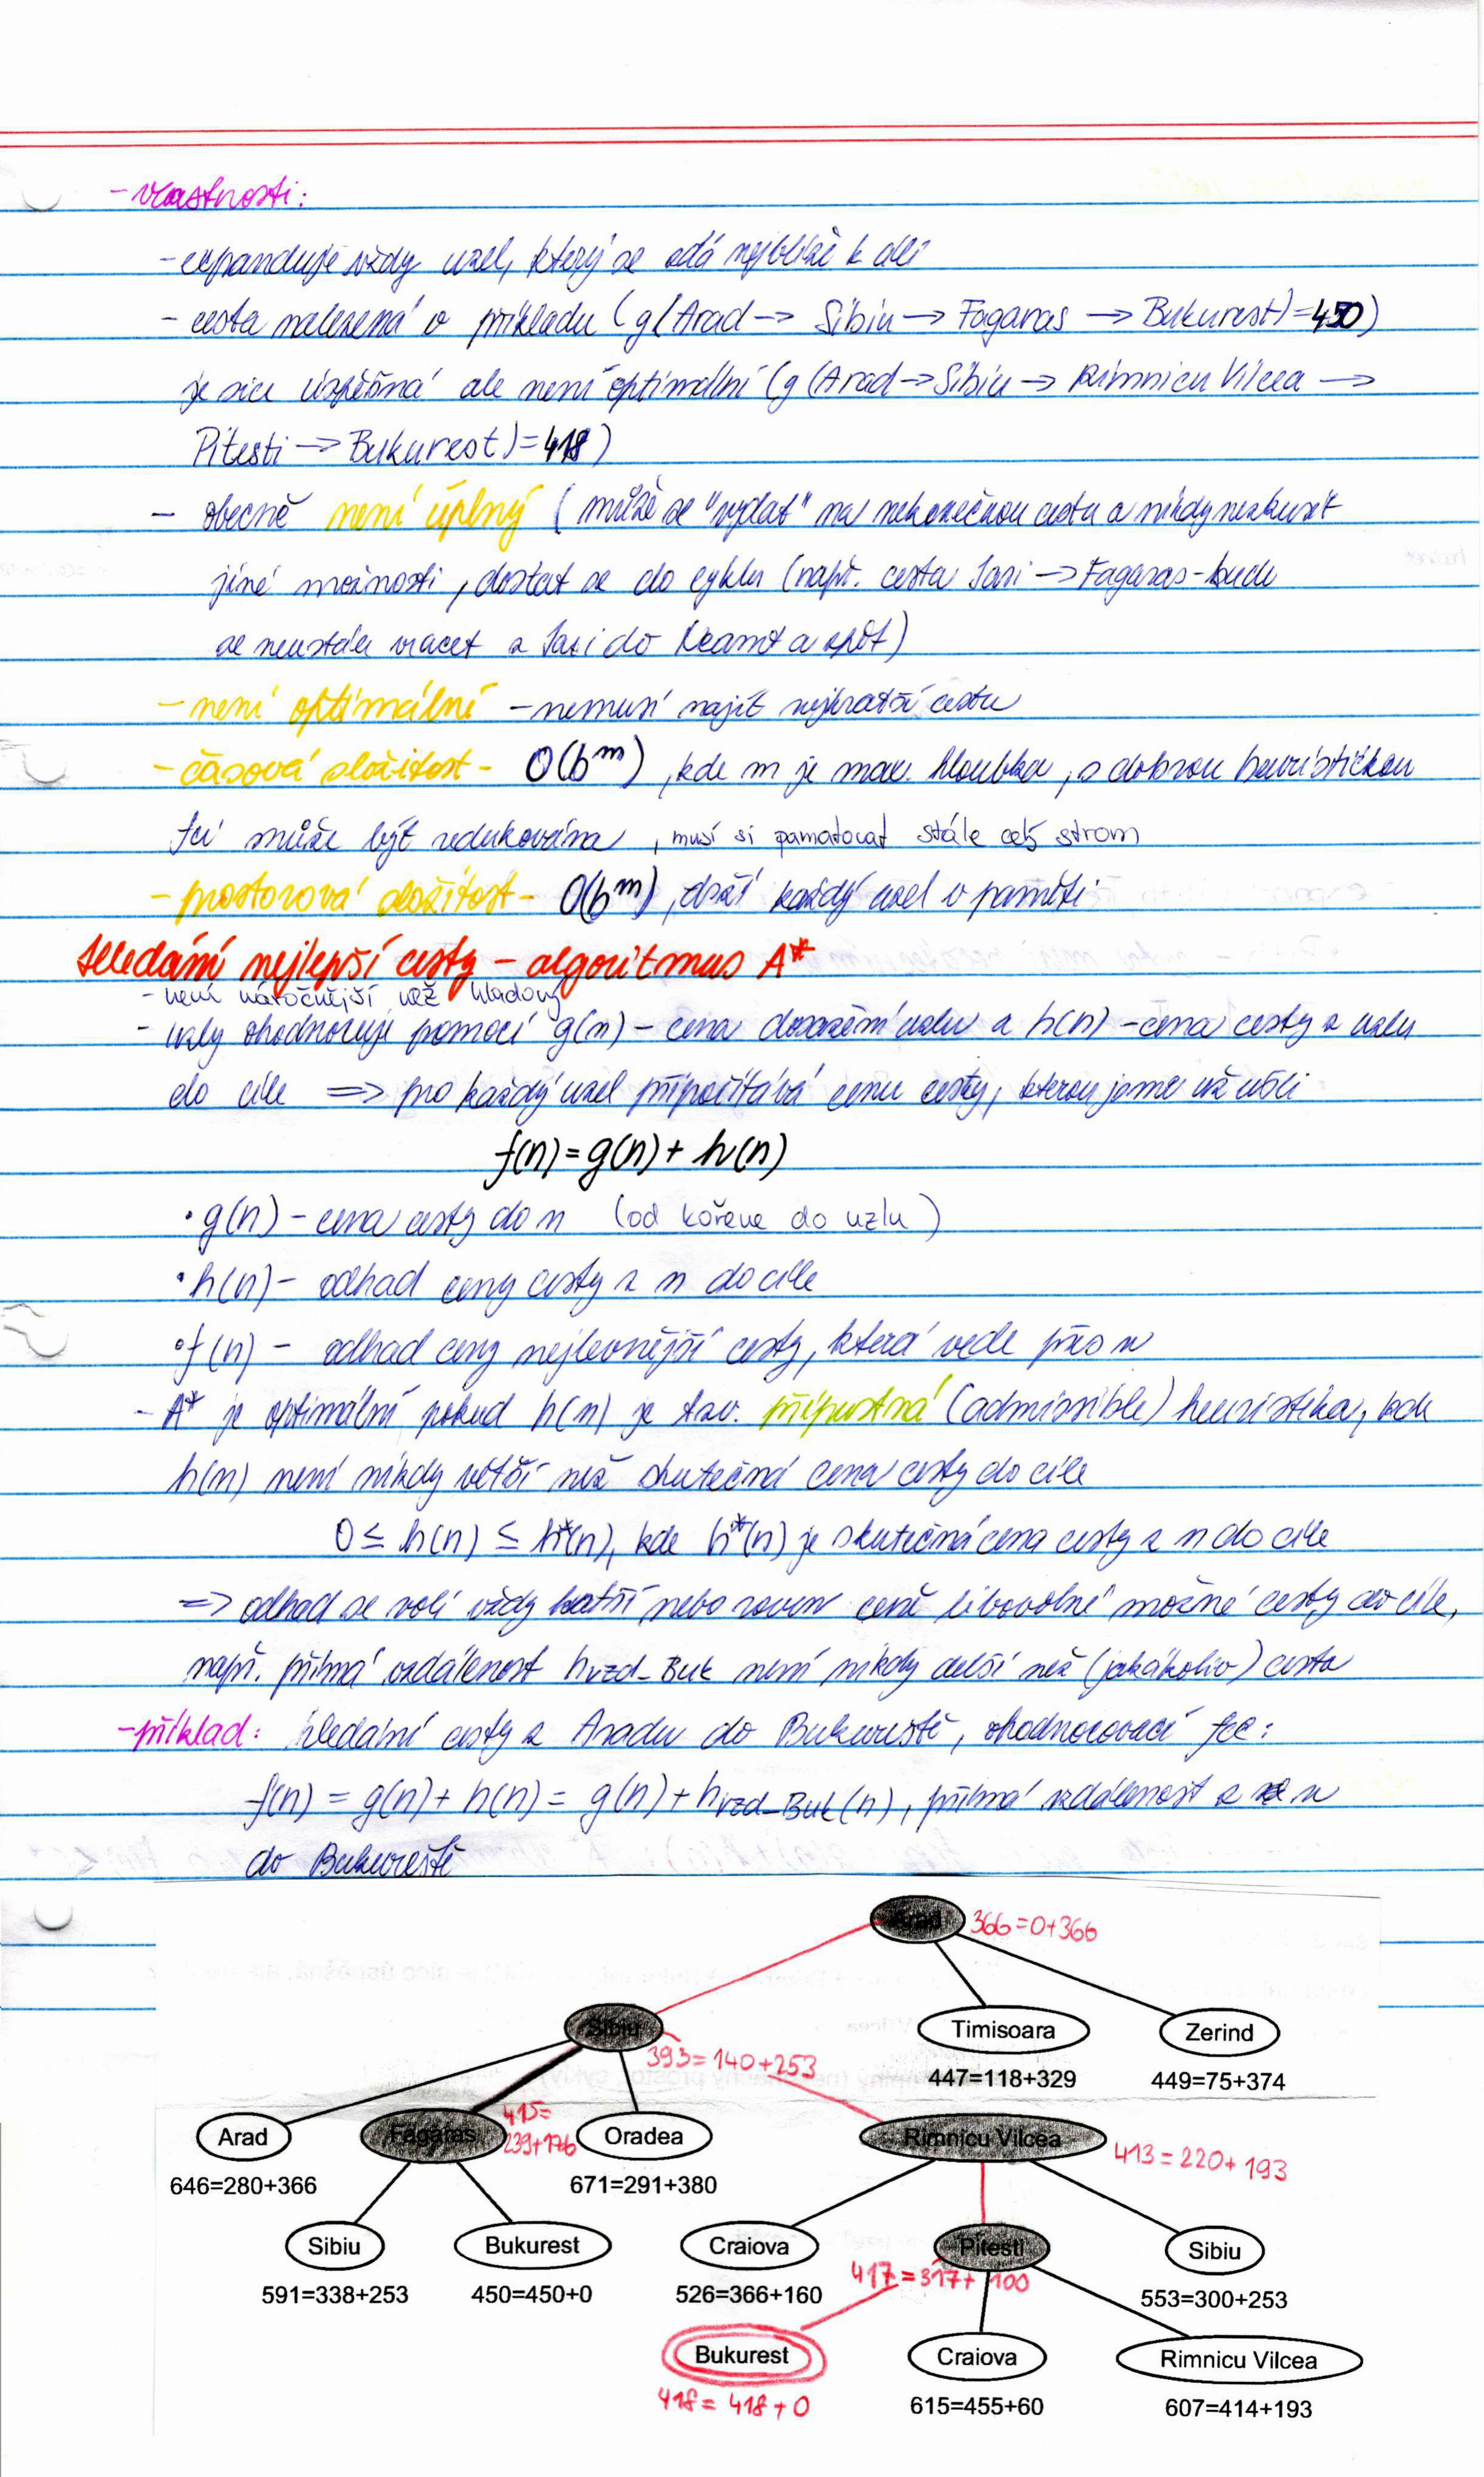 - vlastnosti:
- expanduje vždy uzel, který se zdá nejblíže k cíli
- cesta nalezená v příkladu (g(Arad → Sibiu → Fagaras → Bukurest) = 450)
je sice úspěšná ale není optimální (g(Arad → Sibiu → Rimnicu Vilcea →
Pitesti → Bukurest) = 418)
- obecně není úplný (může se "vydat" na nekonečnou cestu a nikdy nezkusit
jiné možnosti, dostat se do cyklu (např. cesta Iasi → Fagaras - bude
se neustále vracet z Iasi do Neamt a zpět)
- není optimální - nemusí najít nejkratší cestu
- časová složitost - O(b^m), kde m je max. hloubka, s dobrou heuristickou
fcí může být redukována, musí si pamatovat stále celý strom
- prostorová složitost - O(b^m), drží každý uzel v paměti
Hledání nejlepší cesty - algoritmus A*
- není náročnější než hladový
- uzly ohodnocuje pomocí g(n) - cena dosažení uzlu a h(n) - cena cesty z uzlu
do cíle => pro každý uzel připočítává cenu cesty, kterou jsme už ušli
f(n) = g(n) + h(n)
• g(n) - cena cesty do n (od kořene do uzlu)
• h(n) - odhad ceny cesty z n do cíle
• f(n) - odhad ceny nejlevnější cesty, která vede přes n
- A* je optimální pokud h(n) je tzv. přípustná (admissible) heuristika, kde
h(n) není nikdy větší než skutečná cena cesty do cíle
0 ≤ h(n) ≤ h*(n), kde h*(n) je skutečná cena cesty z n do cíle
=> odhad se volí vždy kratší nebo roven ceně libovolné možné cesty do cíle,
např. přímá vzdálenost hvzd_Buk není nikdy delší než (jakákoliv) cesta
- příklad: hledání cesty z Aradu do Bukurešti, ohodnocovací fce:
f(n) = g(n) + h(n) = g(n) + hvzd_Buk(n), přímá vzdálenost z n
do Bukurešti
Arad 366=0+366
Sibiu Timisoara Zerind
393=140+253 447=118+329 449=75+374
Arad Fagaras 415=239+176 Oradea Rimnicu Vilcea 413=220+193
646=280+366 671=291+380
Sibiu Bukurest Craiova Pitesti Sibiu
591=338+253 450=450+0 526=366+160 417=317+100 553=300+253
Bukurest Craiova Rimnicu Vilcea
418=418+0 615=455+60 607=414+193